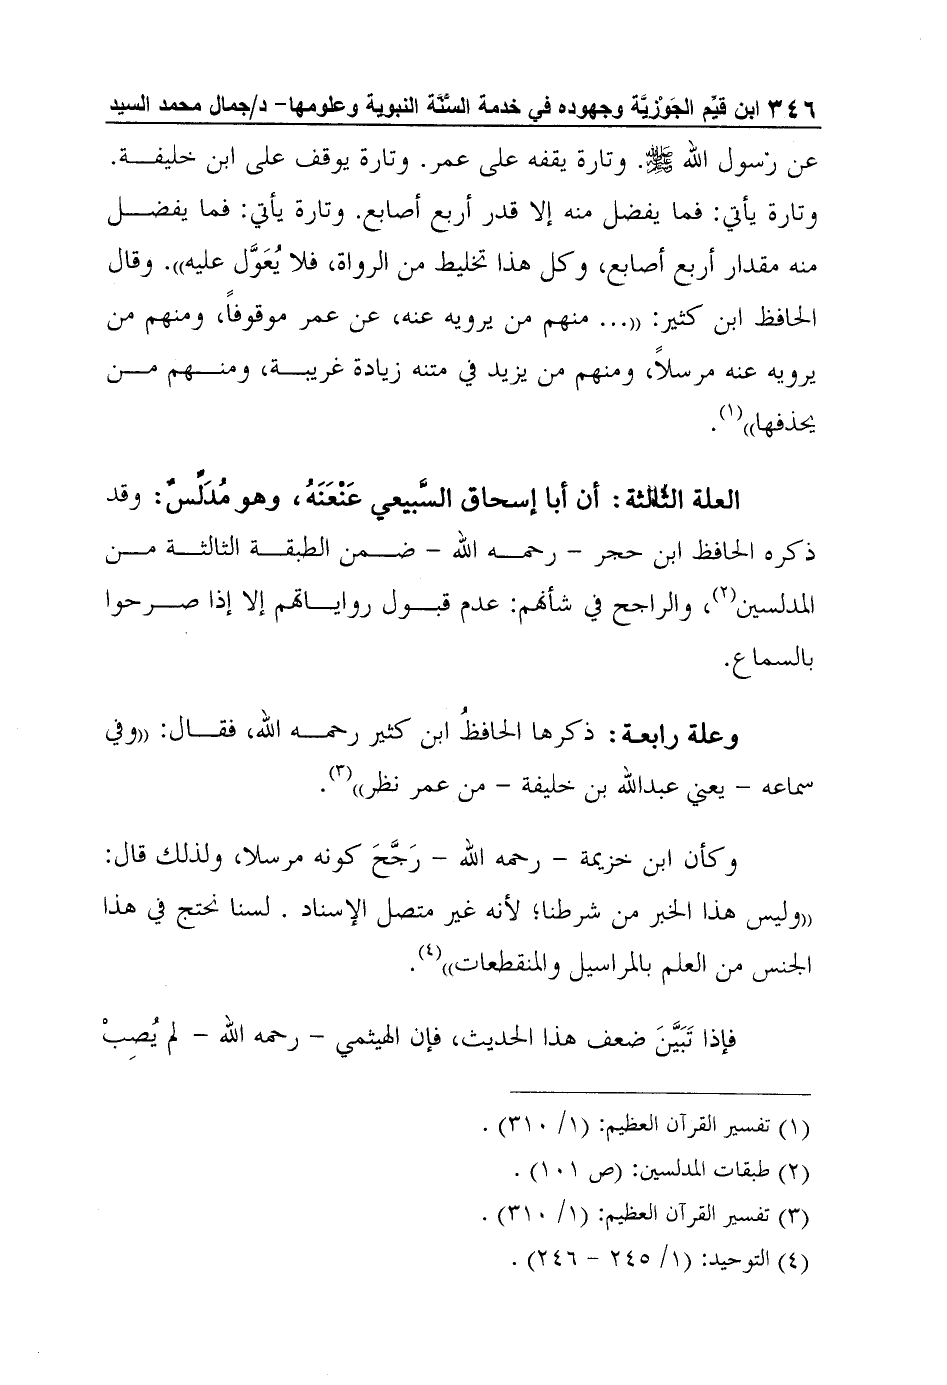 ٣٤٦ ابن قيِّم الجَوْزيَّة وجهوده في خدمة السُّنَّة النبوية وعلومها- د/جمال محمد السيد
عن رسول الله ﷺ. وتارة يقفه على عمر. وتارة يوقف على ابن خليفة.
وتارة يأتي: فما يفضل منه إلا قدر أربع أصابع. وتارة يأتي: فما يفضل
منه مقدار أربع أصابع، وكل هذا تخليط من الرواة، فلا يُعَوَّل عليه)). وقال
الحافظ ابن كثير: ((... منهم من يرويه عنه، عن عمر موقوفاً، ومنهم من
يرويه عنه مرسلاً، ومنهم من يزيد في متنه زيادة غريبة، ومنهم من
يحذفها))(١).
العلة الثالثة: أن أبا إسحاق السَّبيعي عَنْعَنَهُ، وهو مُدَلِّسٌ: وقد
ذكره الحافظ ابن حجر - رحمه الله - ضمن الطبقة الثالثة من
المدلسين(٢)، والراجح في شأنهم: عدم قبول رواياتهم إلا إذا صرحوا
بالسماع.
وعلة رابعة: ذكرها الحافظُ ابن كثير رحمه الله، فقال: ((وفي
سماعه - يعني عبدالله بن خليفة - من عمر نظر))(٣).
وكأن ابن خزيمة - رحمه الله - رَجَّحَ كونه مرسلا، ولذلك قال:
((وليس هذا الخبر من شرطنا؛ لأنه غير متصل الإسناد . لسنا نحتج في هذا
الجنس من العلم بالمراسيل والمنقطعات))(٤).
فإذا تَبَيَّنَ ضعف هذا الحديث، فإن الهيثمي - رحمه الله - لم يُصِبْ
(١) تفسير القرآن العظيم: (١/ ٣١٠) .
(٢) طبقات المدلسين: (ص ١٠١) .
(٣) تفسير القرآن العظيم: (١/ ٣١٠) .
(٤) التوحيد: (١/ ٢٤٥ - ٢٤٦) .